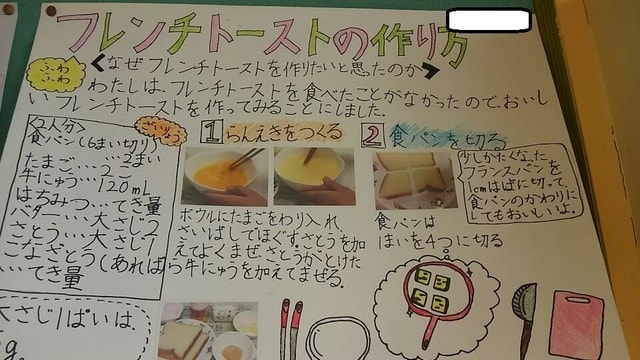 フレンチトーストの作り方
ふわふわ
<なぜフレンチトーストを作りたいと思ったのか>
わたしは、フレンチトーストを食べたことがなかったので、おいし
いフレンチトーストを作ってみることにしました。
<2人分> ざいりょう
食パン(6まい切り)
……2まい
たまご……2こ
牛にゅう…120mL
はちみつ…てき量
バター……大さじ2
さとう……大さじ1
こなざとう(あれば)
…てき量
大さじ1ぱいは、
g.
1 らんえきをつくる
ボウルにたまごをわり入れ
さいばしでほぐす。さとうを加
えてよくまぜ、さとうがとけた
ら牛にゅうを加えてまぜる。
2 食パンを切る
食パンは
1まいを4つに切る
少しかたくなった
フランスパンを
1cmはばに切って、
食パンのかわりに
してもおいしいよ。